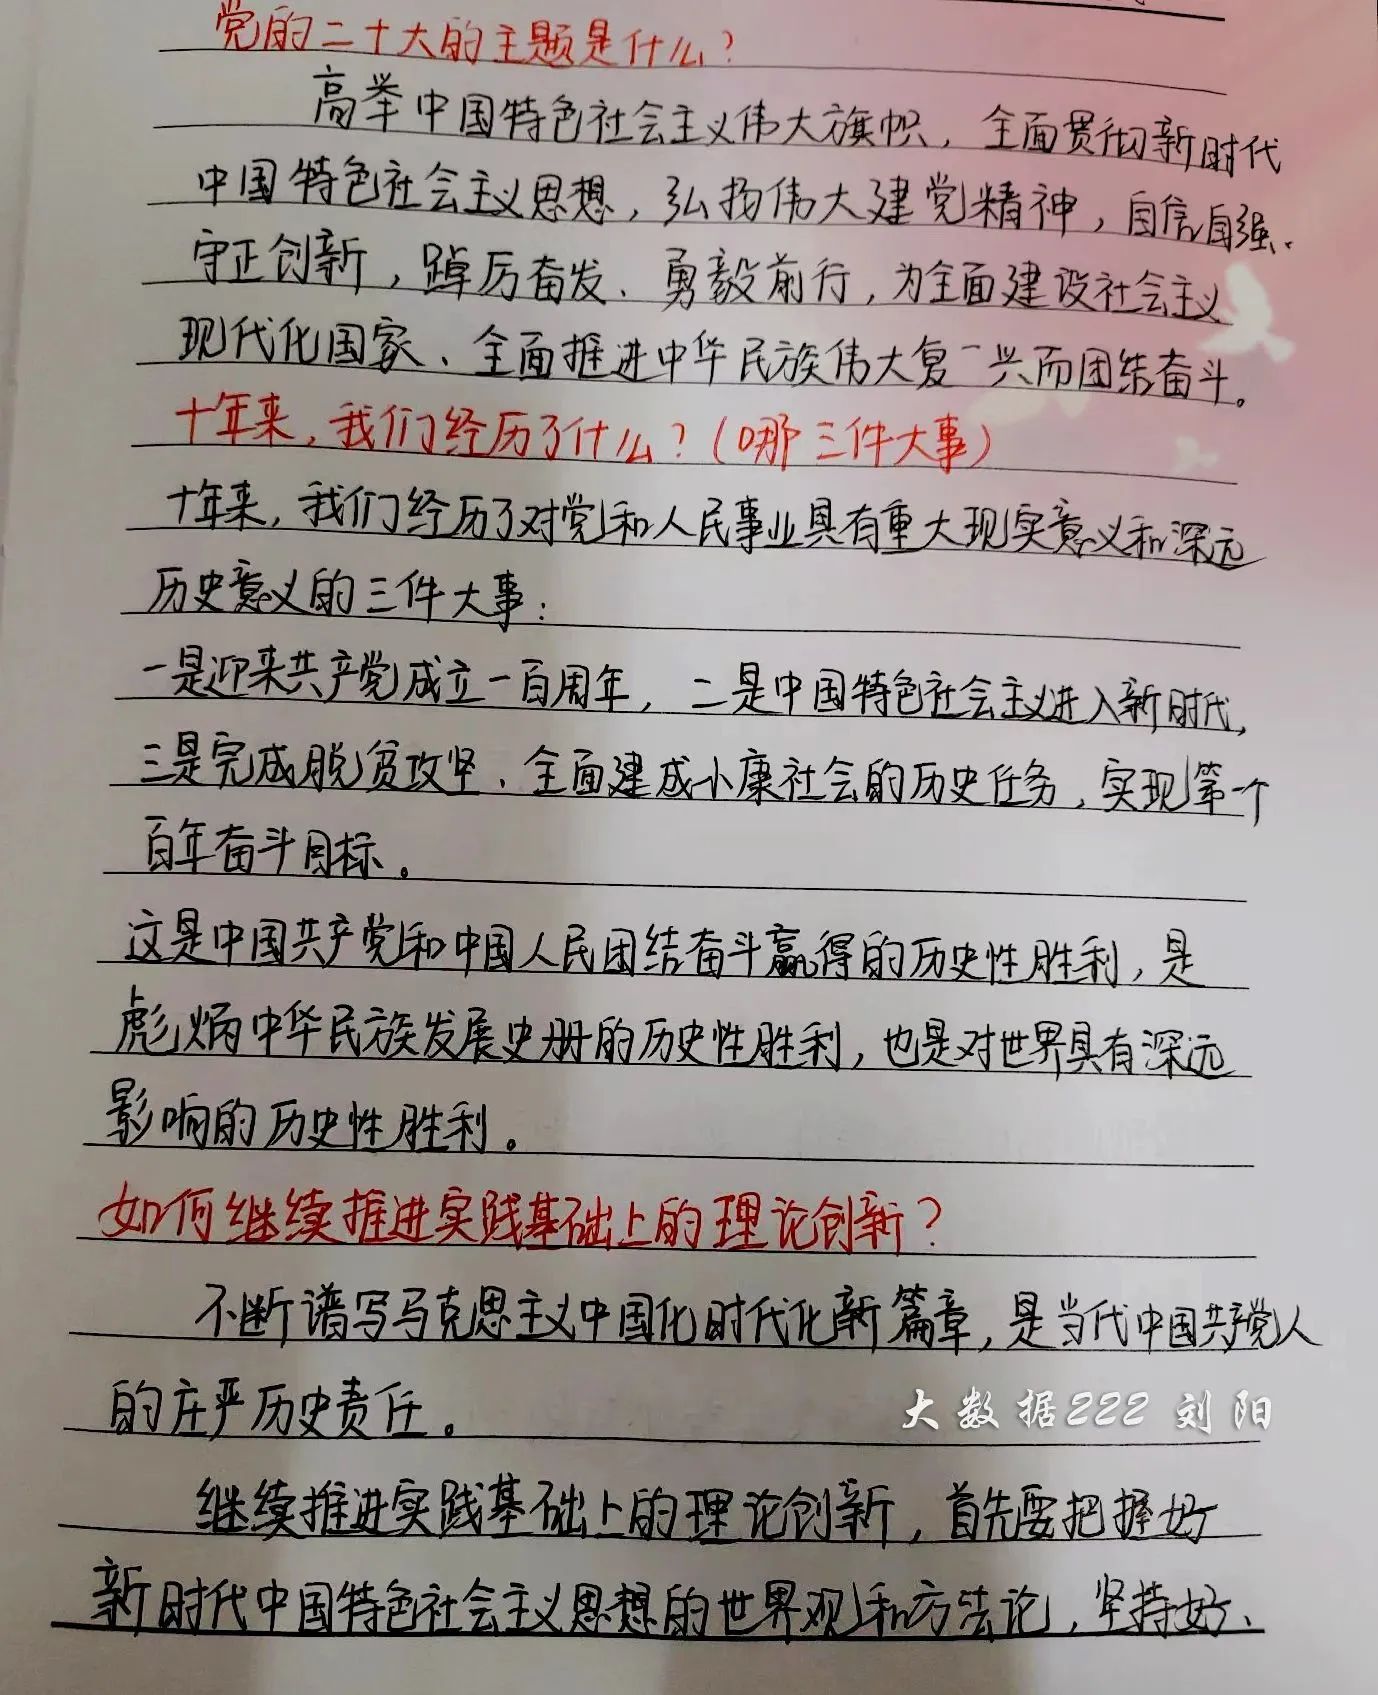 党的二十大的主题是什么？
高举中国特色社会主义伟大旗帜，全面贯彻新时代
中国特色社会主义思想，弘扬伟大建党精神，自信自强、
守正创新，踔厉奋发、勇毅前行，为全面建设社会主义
现代化国家、全面推进中华民族伟大复兴而团结奋斗。
十年来，我们经历了什么？（哪三件大事）
十年来，我们经历了对党和人民事业具有重大现实意义和深远
历史意义的三件大事：
一是迎来共产党成立一百周年，二是中国特色社会主义进入新时代，
三是完成脱贫攻坚、全面建成小康社会的历史任务，实现第一个
百年奋斗目标。
这是中国共产党和中国人民团结奋斗赢得的历史性胜利，是
彪炳中华民族发展史册的历史性胜利，也是对世界具有深远
影响的历史性胜利。
如何继续推进实践基础上的理论创新？
不断谱写马克思主义中国化时代化新篇章，是当代中国共产党人
的庄严历史责任。
大数据222 刘阳
继续推进实践基础上的理论创新，首先要把握好
新时代中国特色社会主义思想的世界观和方法论，坚持好、